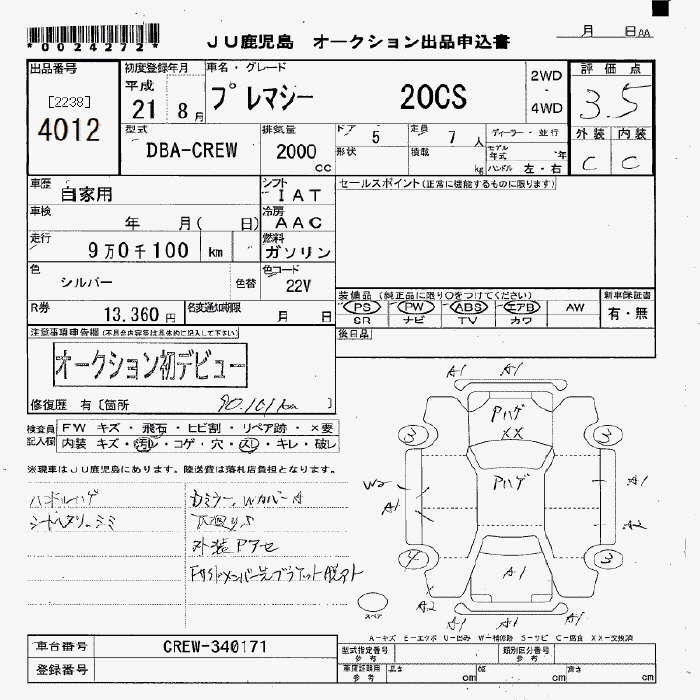 *0024272*
JU鹿児島 オークション出品申込書
月 日 AA
出品番号 初度登録年月 車名・グレード 2WD 評価点
[2238] 平成 プレマシー 20CS ・ 3.5
4012 21 8月 4WD
型式 排気量 ドア 5 定員 7人 ディーラー・並行 外装 内装
DBA-CREW 2000cc 形状 積載 kg モデル年式 年 C C
ハンドル 左・右
車歴 自家用 シフト IAT セールスポイント(正常に機能するものに限ります)
車検 年 月( 日) 冷房 AAC
走行 9万0千100 km 燃料 ガソリン
色 シルバー 色替 色コード 22V
装備品(純正品に限り○をつけてください) 新車保証書
R券 13,360円 名変通知期限 月 日 PS PW ABS エアB AW 有・無
SR ナビ TV カワ
注意事項申告欄(不具合内容等は具体的に記入して下さい) 後日品
オークション初デビュー
修復歴 有[箇所 90,101km ]
検査員 FW キズ・飛石・ヒビ割・リペア跡・×要
記入欄 内装 キズ・汚れ・コゲ・穴・スレ・キレ・破レ
※現車はJU鹿児島にあります。陸送費は落札店負担となります。
ハンドルハゲ
シートヘタリ、シミ
外装アクセ
A1 A1
Pハゲ
XX
3 3
Pハゲ
W2 A1
A1 A2
4 3
A1
A2
スペア
A1 A1 A1
A-キズ E-エクボ U-凹み W-補修跡 S-サビ C-腐食 XX-交換済
車台番号 CREW-340171 型式指定番号 参考 類別区分番号 参考
登録番号 車庫証明用 参考 長さ cm 幅 cm 高さ cm